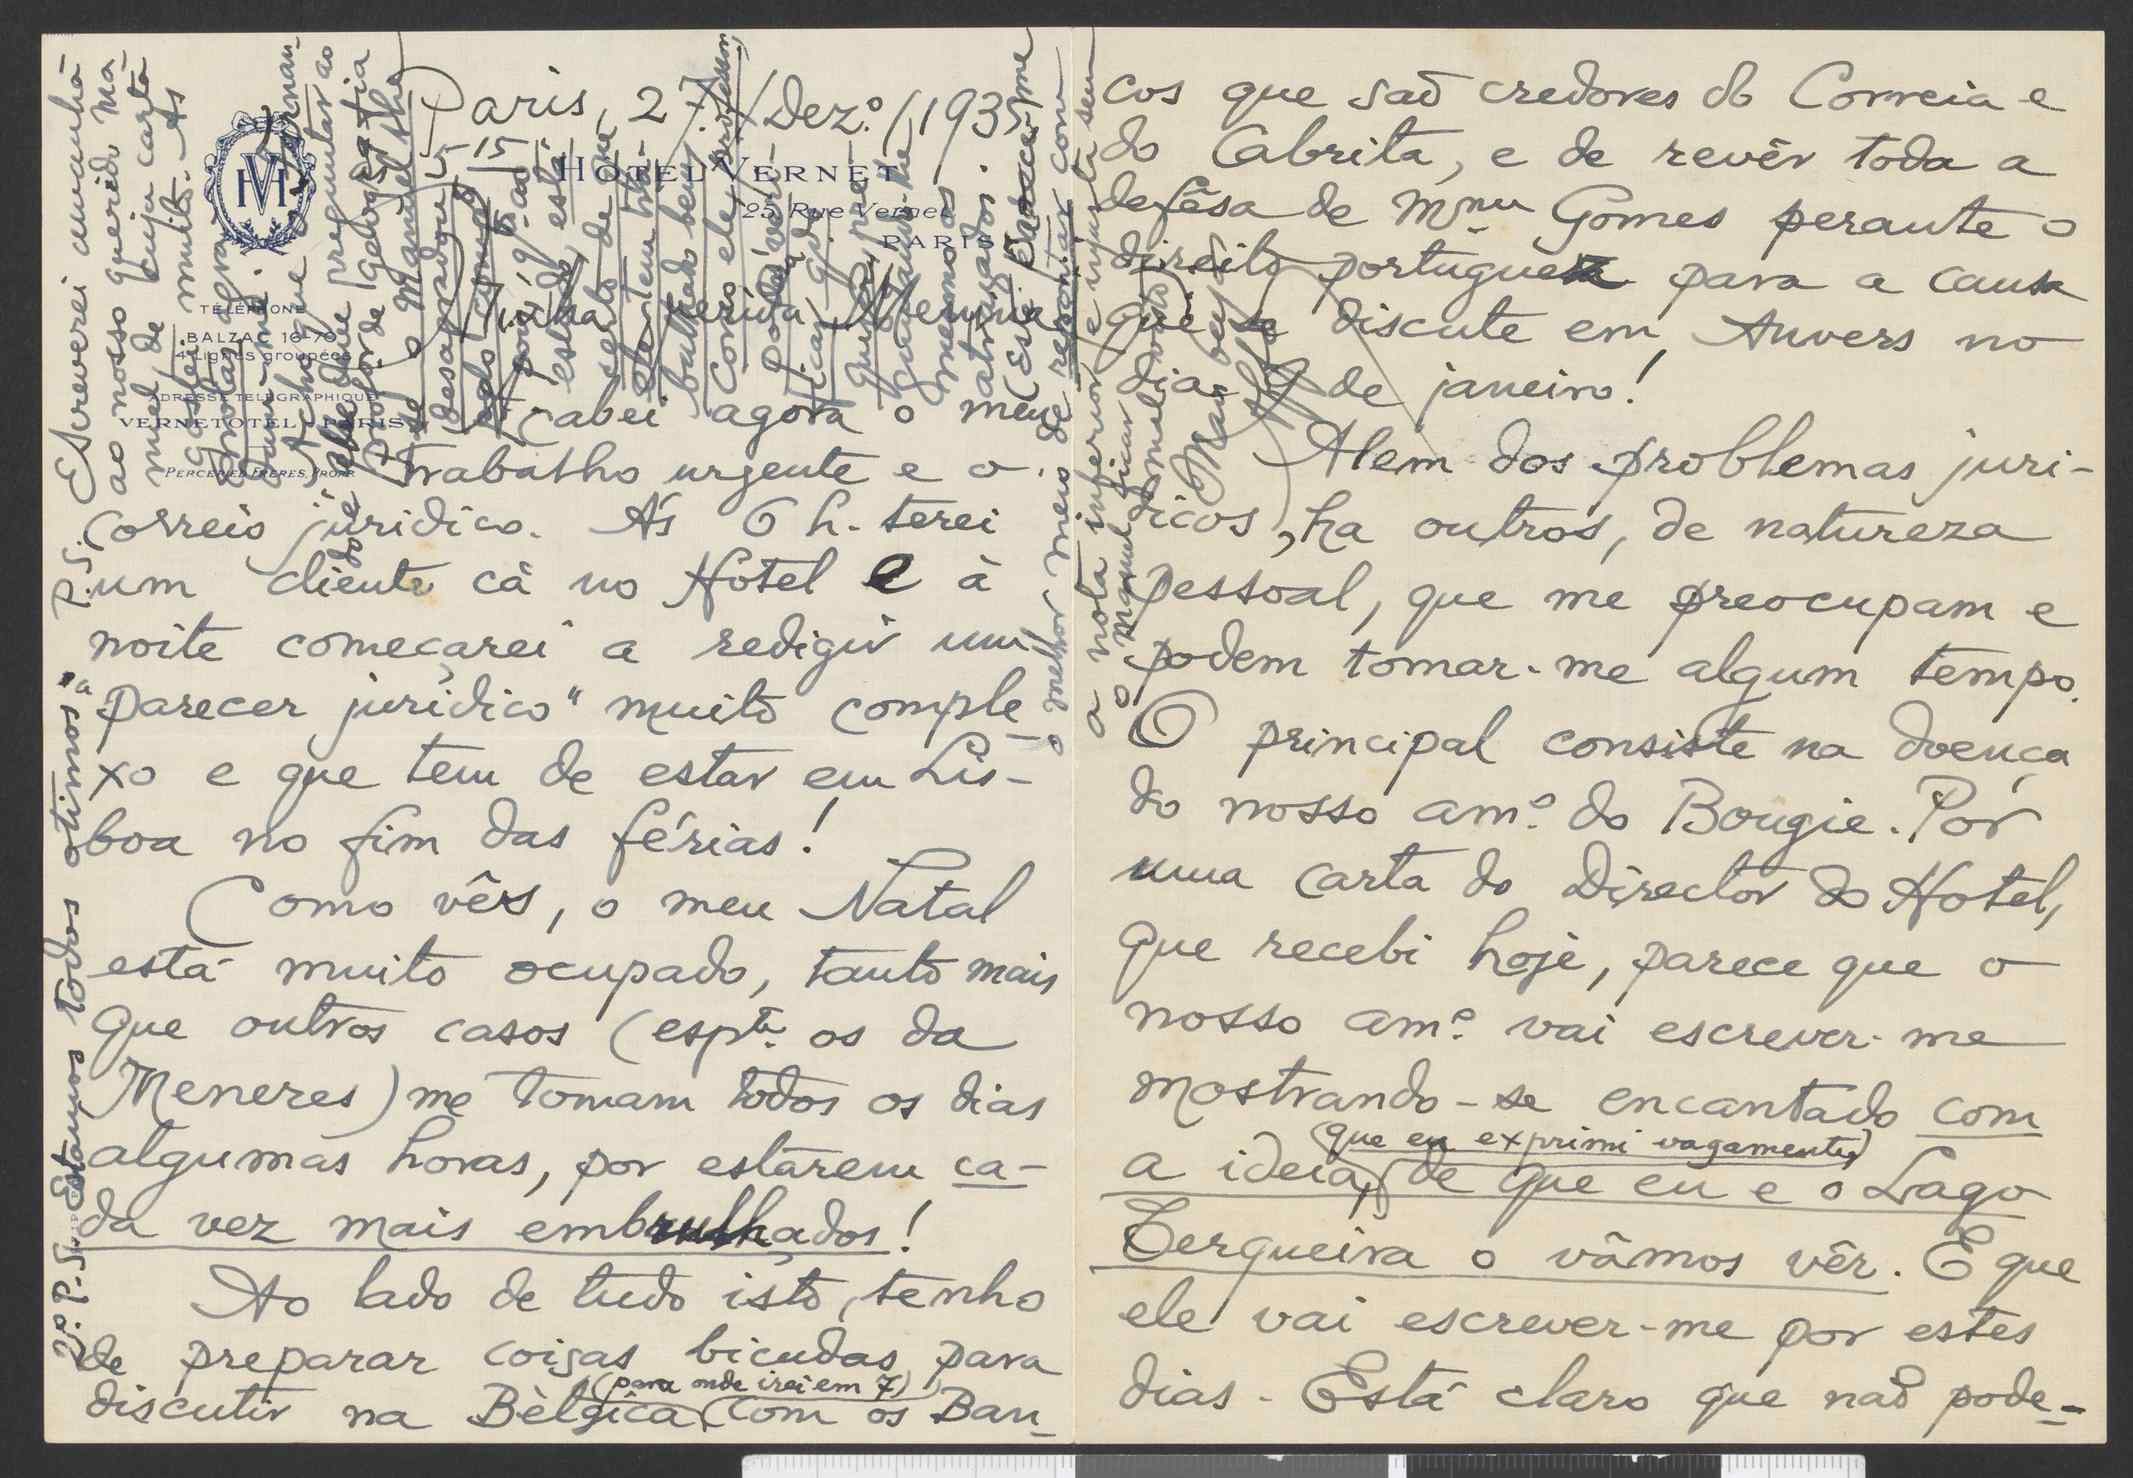 Paris, 27/Dez.º/1935
HOTEL VERNET
25, Rue Vernet
PARIS
TÉLÉPHONE
BALZAC 16-70
4 Lignes groupées
ADRESSE TÉLÉGRAPHIQUE
VERNETOTEL PARIS
Minha querida Menina
Acabei agora o meu
trabalho urgente e o
correio juridico. Ás 6 h. terei
um cliente cá no Hotel e á
noite começarei a redigir um
"parecer juridico" muito comple-
xo e que tem de estar em Lis-
boa no fim das férias!
Como vês, o meu Natal
está muito ocupado, tanto mais
que outros casos (espte. os da
Meneres) me tomam todos os dias
algumas horas, por estarem ca-
da vez mais embrulhados!
Ao lado de tudo isto, tenho
de preparar coisas bicudas para
discutir na Bèlgica (para onde irei em 7) com os Ban-
cos que saõ credores do Correia e
do Cabrita, e de revêr toda a
defêsa de Mnu Gomes perante o
direito portuguez para a causa
que se discute em Anvers no
dia 9 de janeiro!
Alem dos problemas juri-
dicos, ha outros, de natureza
pessoal, que me preocupam e
podem tomar-me algum tempo.
O principal consiste na doença
do nosso am.º do Bougie. Por
uma carta do Director do Hotel,
que recebi hoje, parece que o
nosso am.º vai escrever-me
mostrando-se encantado com
a ideia, (que eu exprimi vagamente) de que eu e o Lago
Cerqueira o vâmos vêr. E que
ele vai escrever-me por estes
dias. Está claro que naõ pode-
P.S. Escreverei amanhã
ao nosso querido Ma-
nuel de cuja carta
gostei muito. As
o melhor meio de reportar com
a nota inferior e injusta sem
o Manuel ficar
Mais beijos
2.º P.S. Estamos todos "otimos"